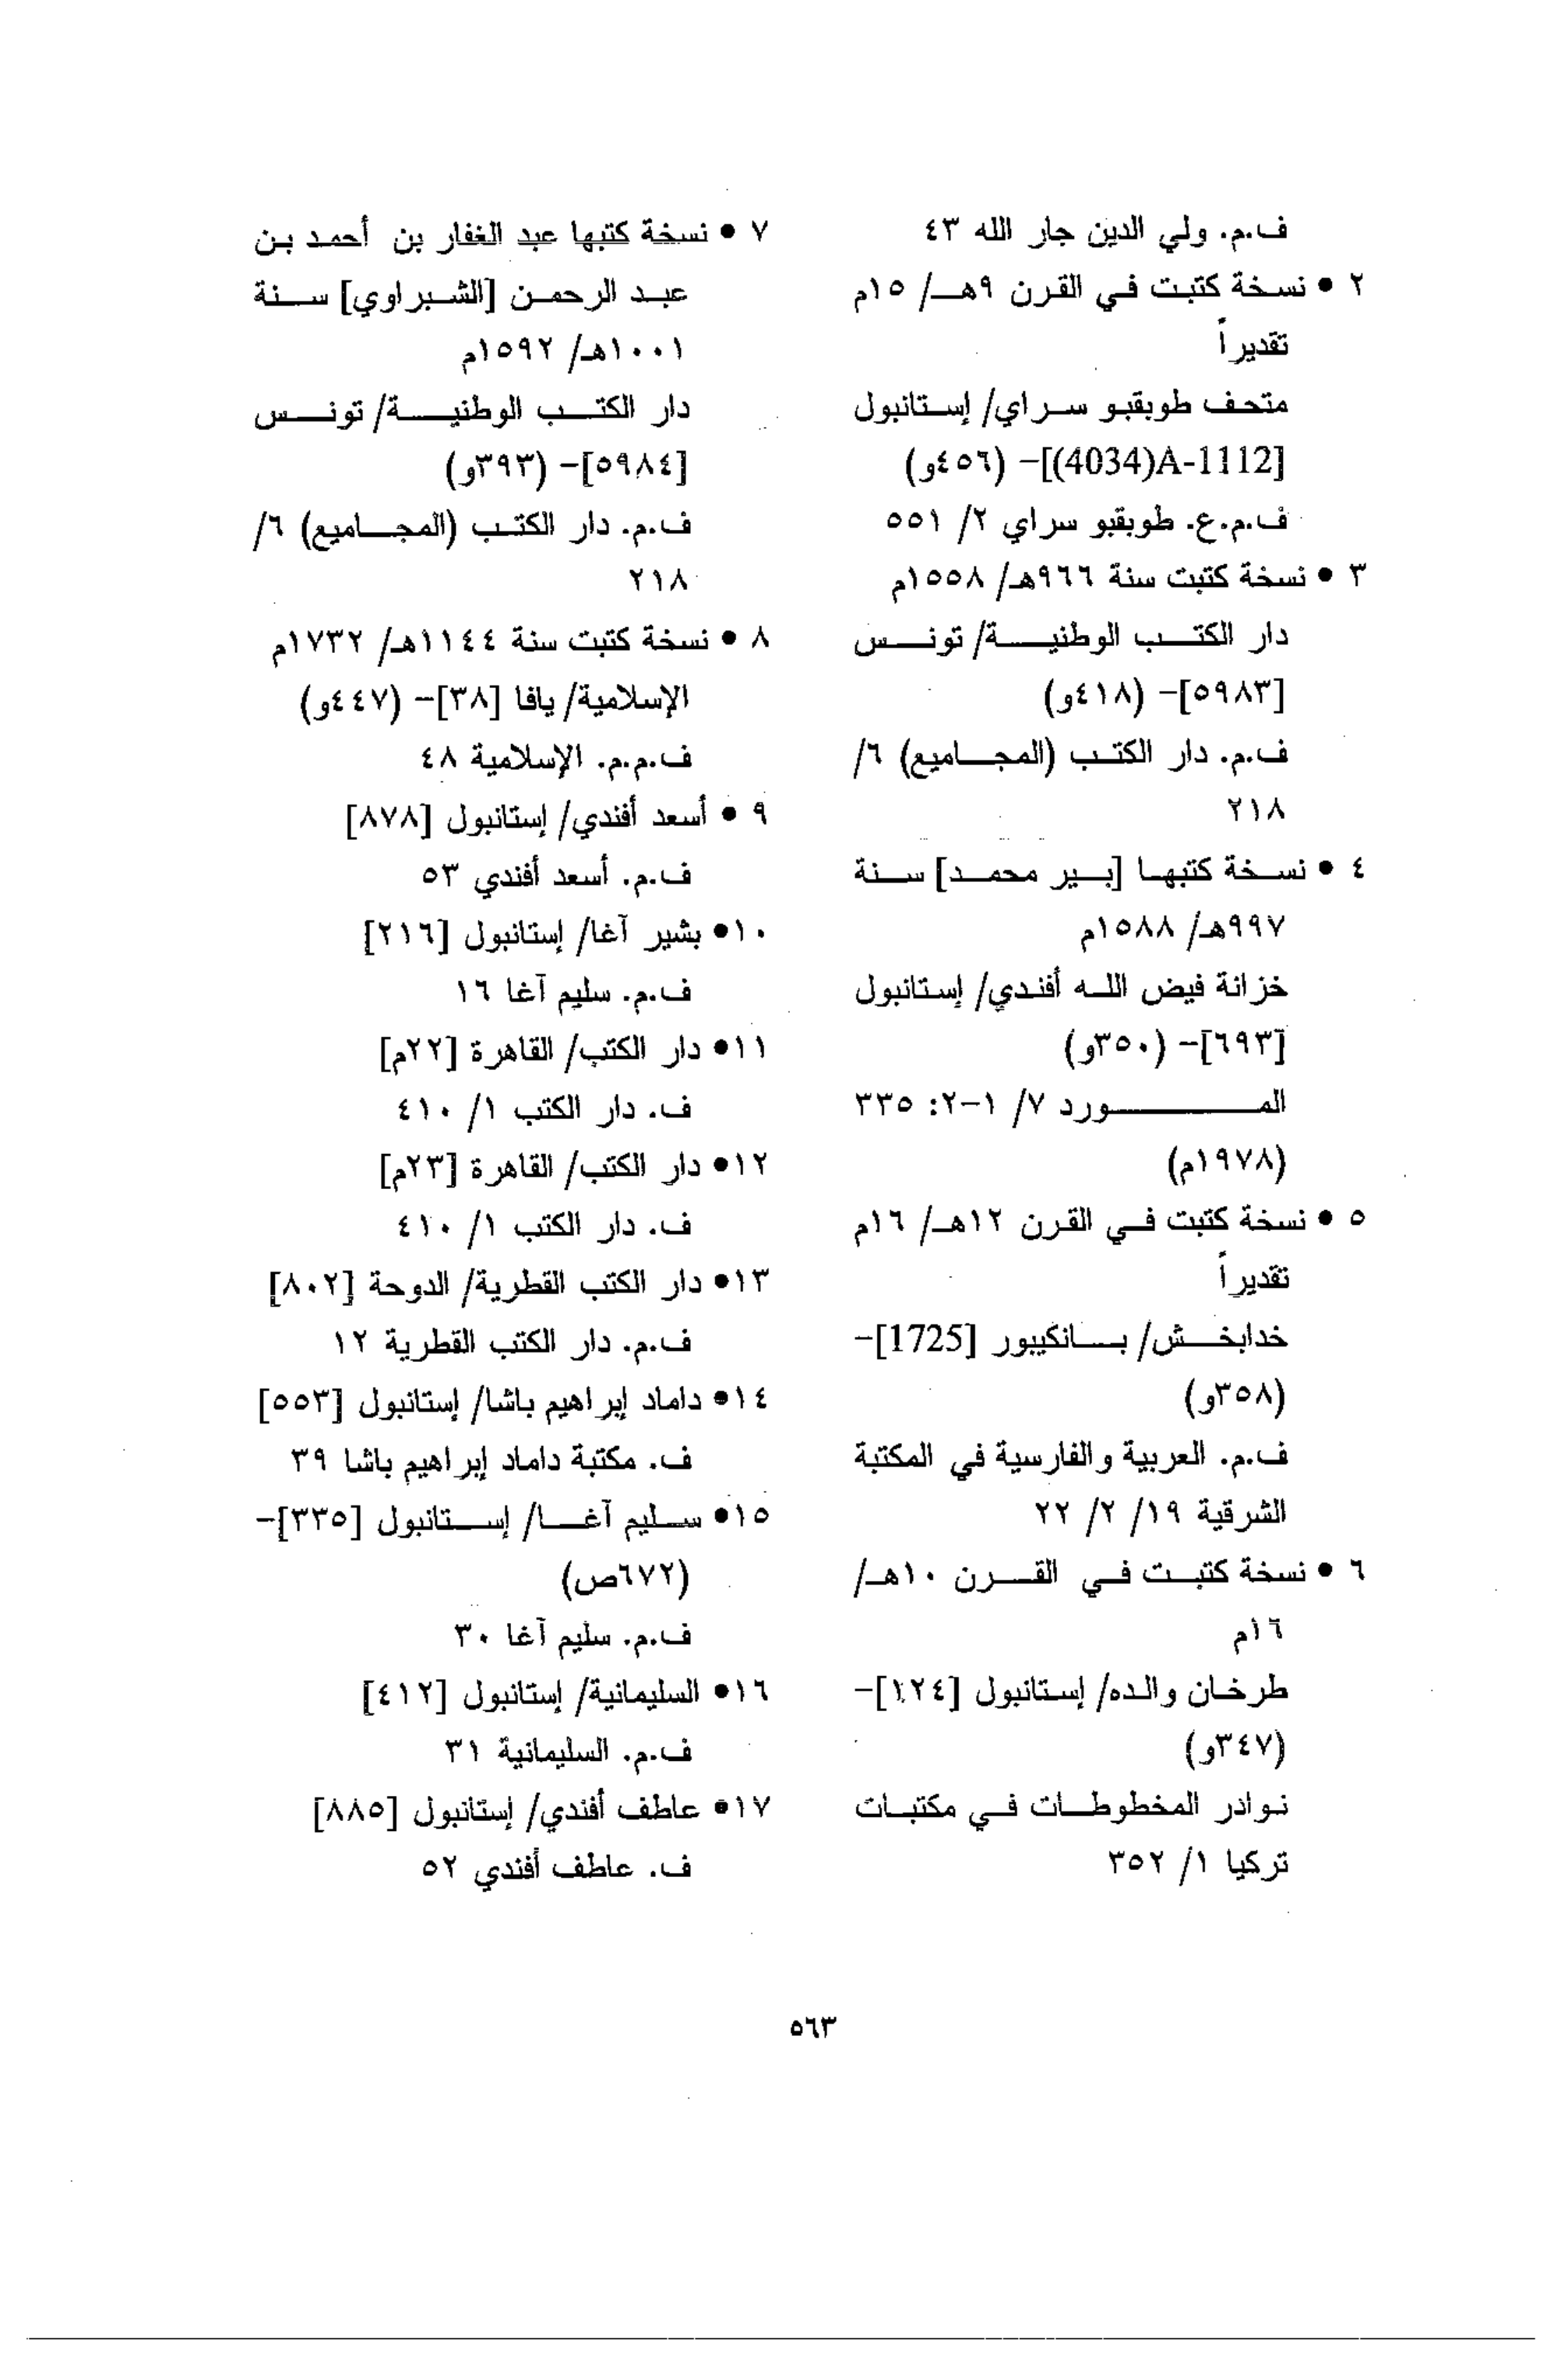 ف.م. ولي الدين جار الله ٤٣
٢ • نسخة كتبت في القرن ٩هـ/ ١٥م
تقديراً
متحف طوبقبو سراي/ إستانبول
[4034)A-1112)]- (٤٥٦و)
ف.م.ع. طوبقبو سراي ٢/ ٥٥١
٣ • نسخة كتبت سنة ٩٦٦هـ/ ١٥٥٨م
دار الكتب الوطنية/ تونس
[٥٩٨٣]- (٤١٨و)
ف.م. دار الكتب (المجاميع) ٦/
٢١٨
٤ • نسخة كتبها [بير محمد] سنة
٩٩٧هـ/ ١٥٨٨م
خزانة فيض الله أفندي/ إستانبول
[٦٩٣]- (٣٥٠و)
المورد ٧/ ١-٢: ٣٣٥
(١٩٧٨م)
٥ • نسخة كتبت في القرن ١٢هـ/ ١٦م
تقديراً
خدابخش/ بانكيبور [1725]-
(٣٥٨و)
ف.م. العربية والفارسية في المكتبة
الشرقية ١٩/ ٢/ ٢٢
٦ • نسخة كتبت في القرن ١٠هـ/
١٦م
طرخان والده/ إستانبول [١٢٤]-
(٣٤٧و)
نوادر المخطوطات في مكتبات
تركيا ١/ ٣٥٢
٧ • نسخة كتبها عبد الغفار بن أحمد بن
عبد الرحمن [الشبراوي] سنة
١٠٠١هـ/ ١٥٩٢م
دار الكتب الوطنية/ تونس
[٥٩٨٤]- (٣٩٣و)
ف.م. دار الكتب (المجاميع) ٦/
٢١٨
٨ • نسخة كتبت سنة ١١٤٤هـ/ ١٧٣٢م
الإسلامية/ يافا [٣٨]- (٤٤٧و)
ف.م.م. الإسلامية ٤٨
٩ • أسعد أفندي/ إستانبول [٨٧٨]
ف.م. أسعد أفندي ٥٣
١٠• بشير آغا/ إستانبول [٢١٦]
ف.م. سليم آغا ١٦
١١• دار الكتب/ القاهرة [٢٢م]
ف. دار الكتب ١/ ٤١٠
١٢• دار الكتب/ القاهرة [٢٣م]
ف. دار الكتب ١/ ٤١٠
١٣• دار الكتب القطرية/ الدوحة [٨٠٢]
ف.م. دار الكتب القطرية ١٢
١٤• داماد إبراهيم باشا/ إستانبول [٥٥٣]
ف. مكتبة داماد إبراهيم باشا ٣٩
١٥• سليم آغا/ إستانبول [٣٣٥]-
(٦٧٢ص)
ف.م. سليم آغا ٣٠
١٦• السليمانية/ إستانبول [٤١٢]
ف.م. السليمانية ٣١
١٧• عاطف أفندي/ إستانبول [٨٨٥]
ف. عاطف أفندي ٥٢
٥٦٣